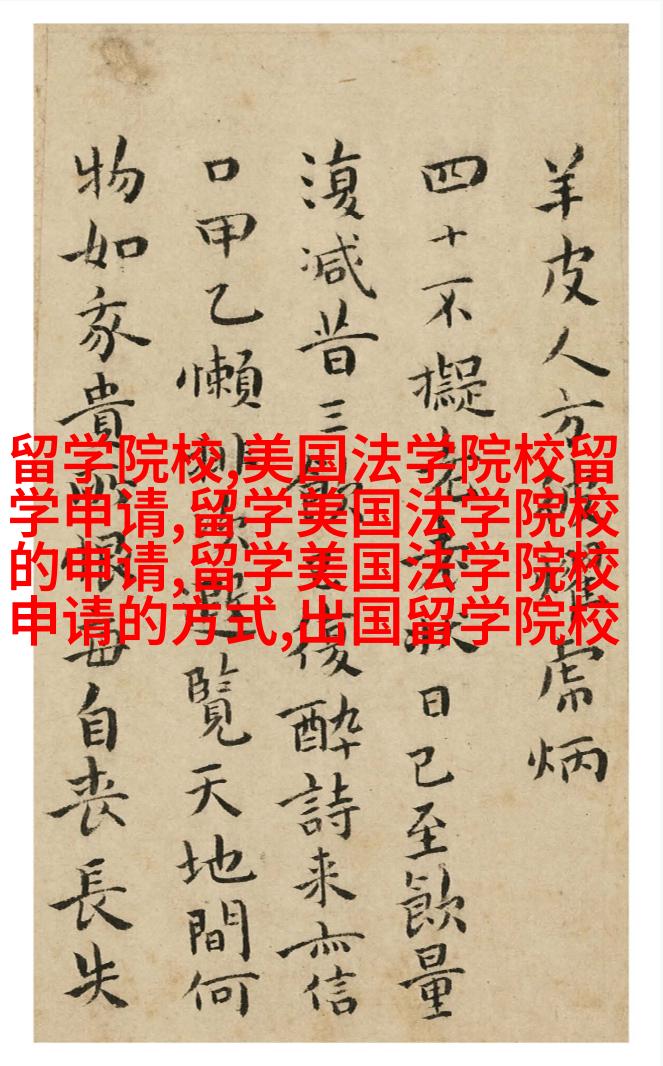 留学院校,美国法学院校留
学申请,留学美国法学院校
的申请,留学美国法学院校
申请的方式,出国留学院校
羊皮人方炳
四十不擬日已至飲量
復減昔三復醉詩来亦信
口甲乙懶覽天地間何
物如貴自丧長失